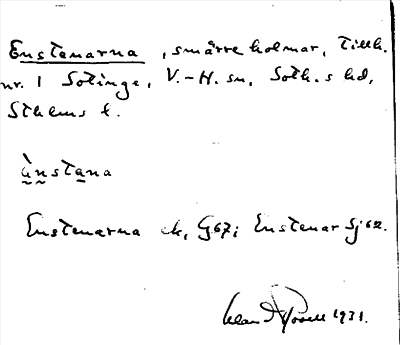 Enstenarna, smärre holmar, Tillh.
nr. 1 Sotinge, V.-H. sn, Soth.s hd,
Sthlms l.
ùnstana
Enstenarna ek, G67; Enstenar Sj 62.
1931.